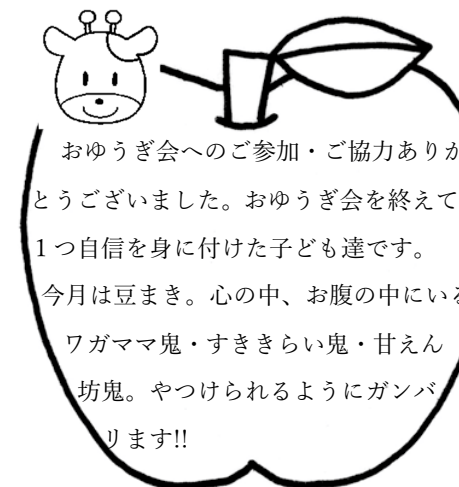 おゆうぎ会へのご参加・ご協力ありが
とうございました。おゆうぎ会を終えて
１つ自信を身に付けた子ども達です。
今月は豆まき。心の中、お腹の中にいる
ワガママ鬼・すききらい鬼・甘えん
坊鬼。やつけられるようにガンバ
リます!!